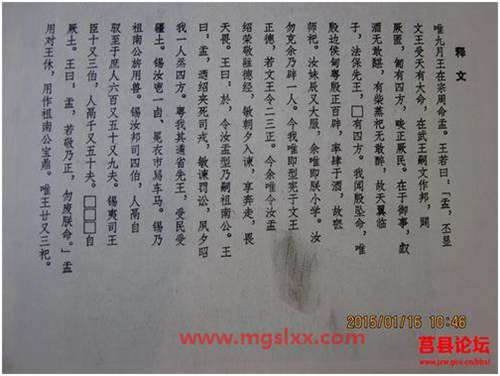 释文
唯九月王在宗周命盂。王若曰,「盂,丕显
文王受天有大命,在武王嗣文作邦,闢
厥匿,匍有四方,畯正厥民。在于御事,䖒
酒无敢酖,有柴蒸祀无敢醉,故天翼临
子,法保先王,□有四方。我闻殷坠命,唯
殷边侯甸粤殷正百辟,率肄于酒,故丧
师祀。汝妹辰又大服,余唯即朕小学。汝
勿克余乃辟一人。今我唯即型宪于文王
正德,若文王令二三正。今余唯令汝盂
绍荣敬雝德经,敏朝夕入谏,享奔走,畏
天畏。王曰:於,令汝盂型乃嗣祖南公。王
曰,盂,迺绍夹死司戎,敏谏罚讼,夙夕昭
我一人烝四方。粤我其遹省先王,受民受
疆土。锡汝鬯一卣、冕衣巿舄车马。锡乃
祖南公旂用兽。锡汝邦司四伯,人鬲自
驭至于庶人六百又五十又九夫。锡夷司王
臣十又三伯,人鬲千又五十夫。□□□自
厥土。王曰:盂,若敬乃正,勿废朕命。」盂
用对王休,用作祖南公宝鼎。唯王廿又三祀。
2015/01/16 10:46
www.mgslxx.com
莒县论坛